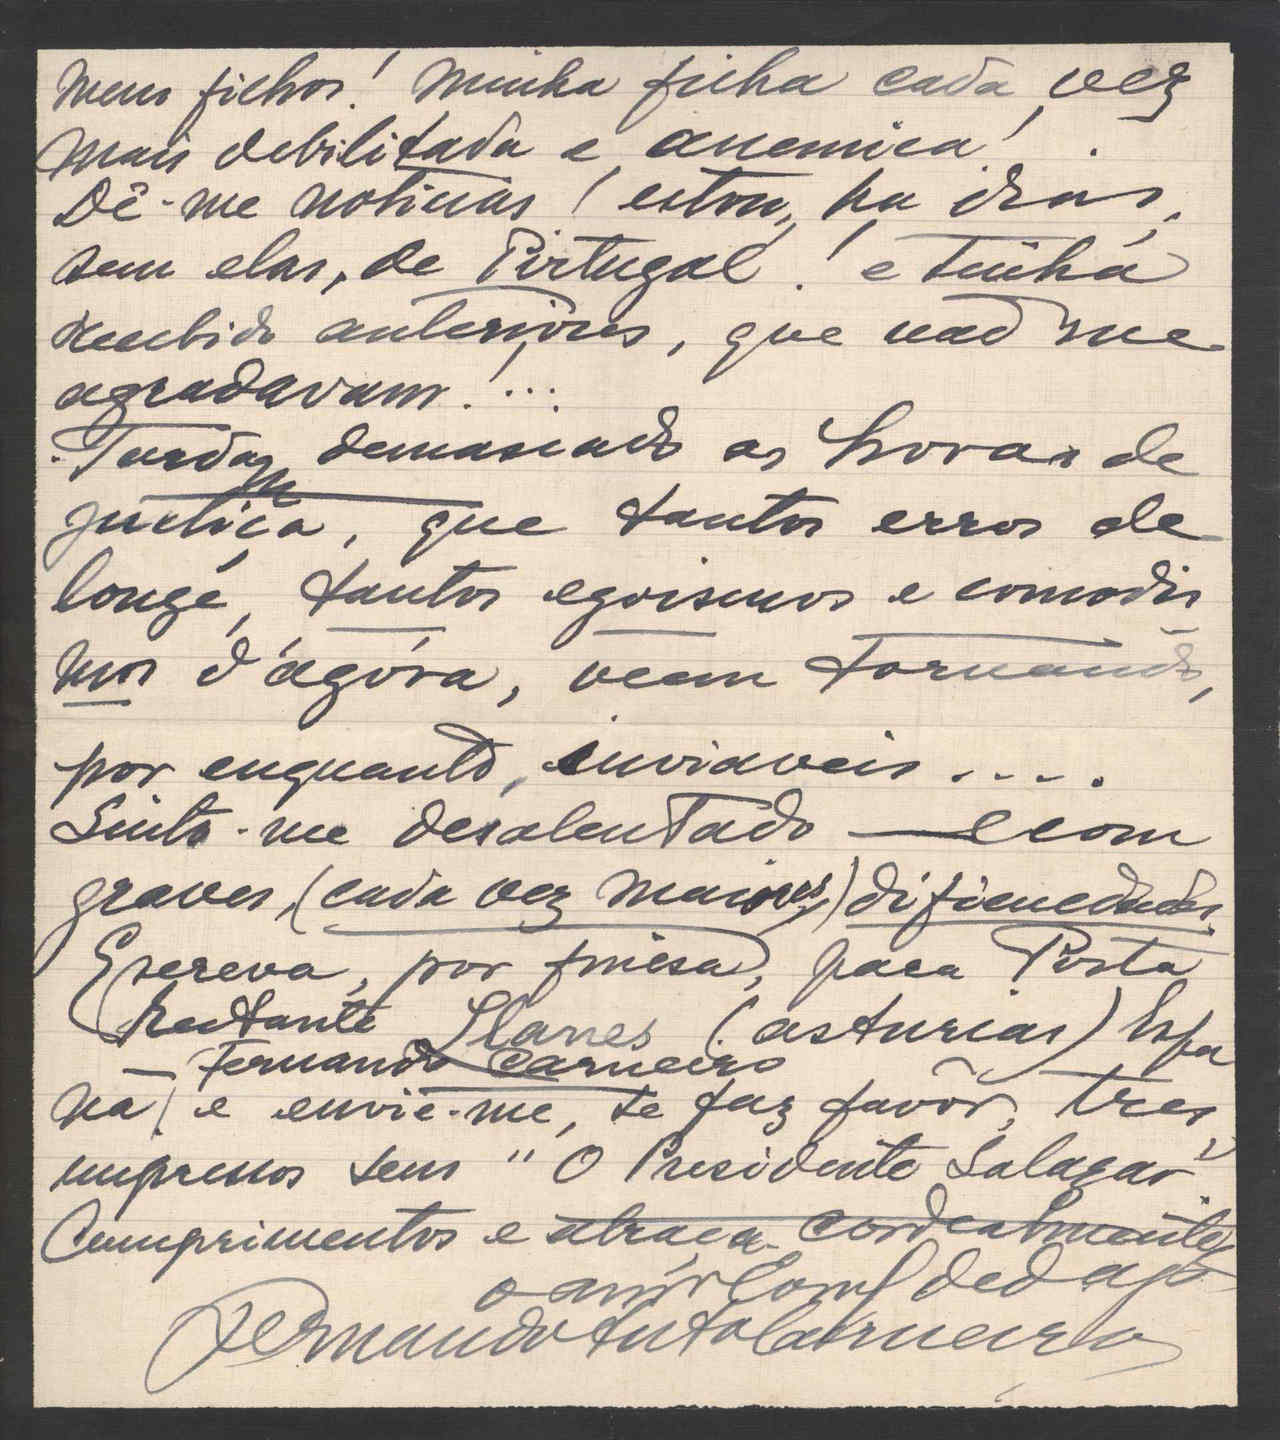 meus filhos! Minha filha cada vez
mais debilitada e anemica!
Dê-me noticias! estou, ha dias,
sem elas, de Portugal! e tinha
recebido anteriores, que não me
agradavam!...
Tardam demasiado as horas de
justiça, que tantos erros de
longe, tantos egoismos e comodis
mos d'agóra, veem tornando,
por enquanto, inviaveis....
Sinto-me desalentado — e com
graves, (cada vez maiores) dificuldades.
Escreva, por finesa, para Posta
Restante Llanes (Asturias) Espa
— Fernando Carneiro
nha/ e envie-me, se faz favôr, tres
impressos seus "O Presidente Salazar"
Cumprimentos e abraça cordealmente,
o amº ded
Fernando Carneiro